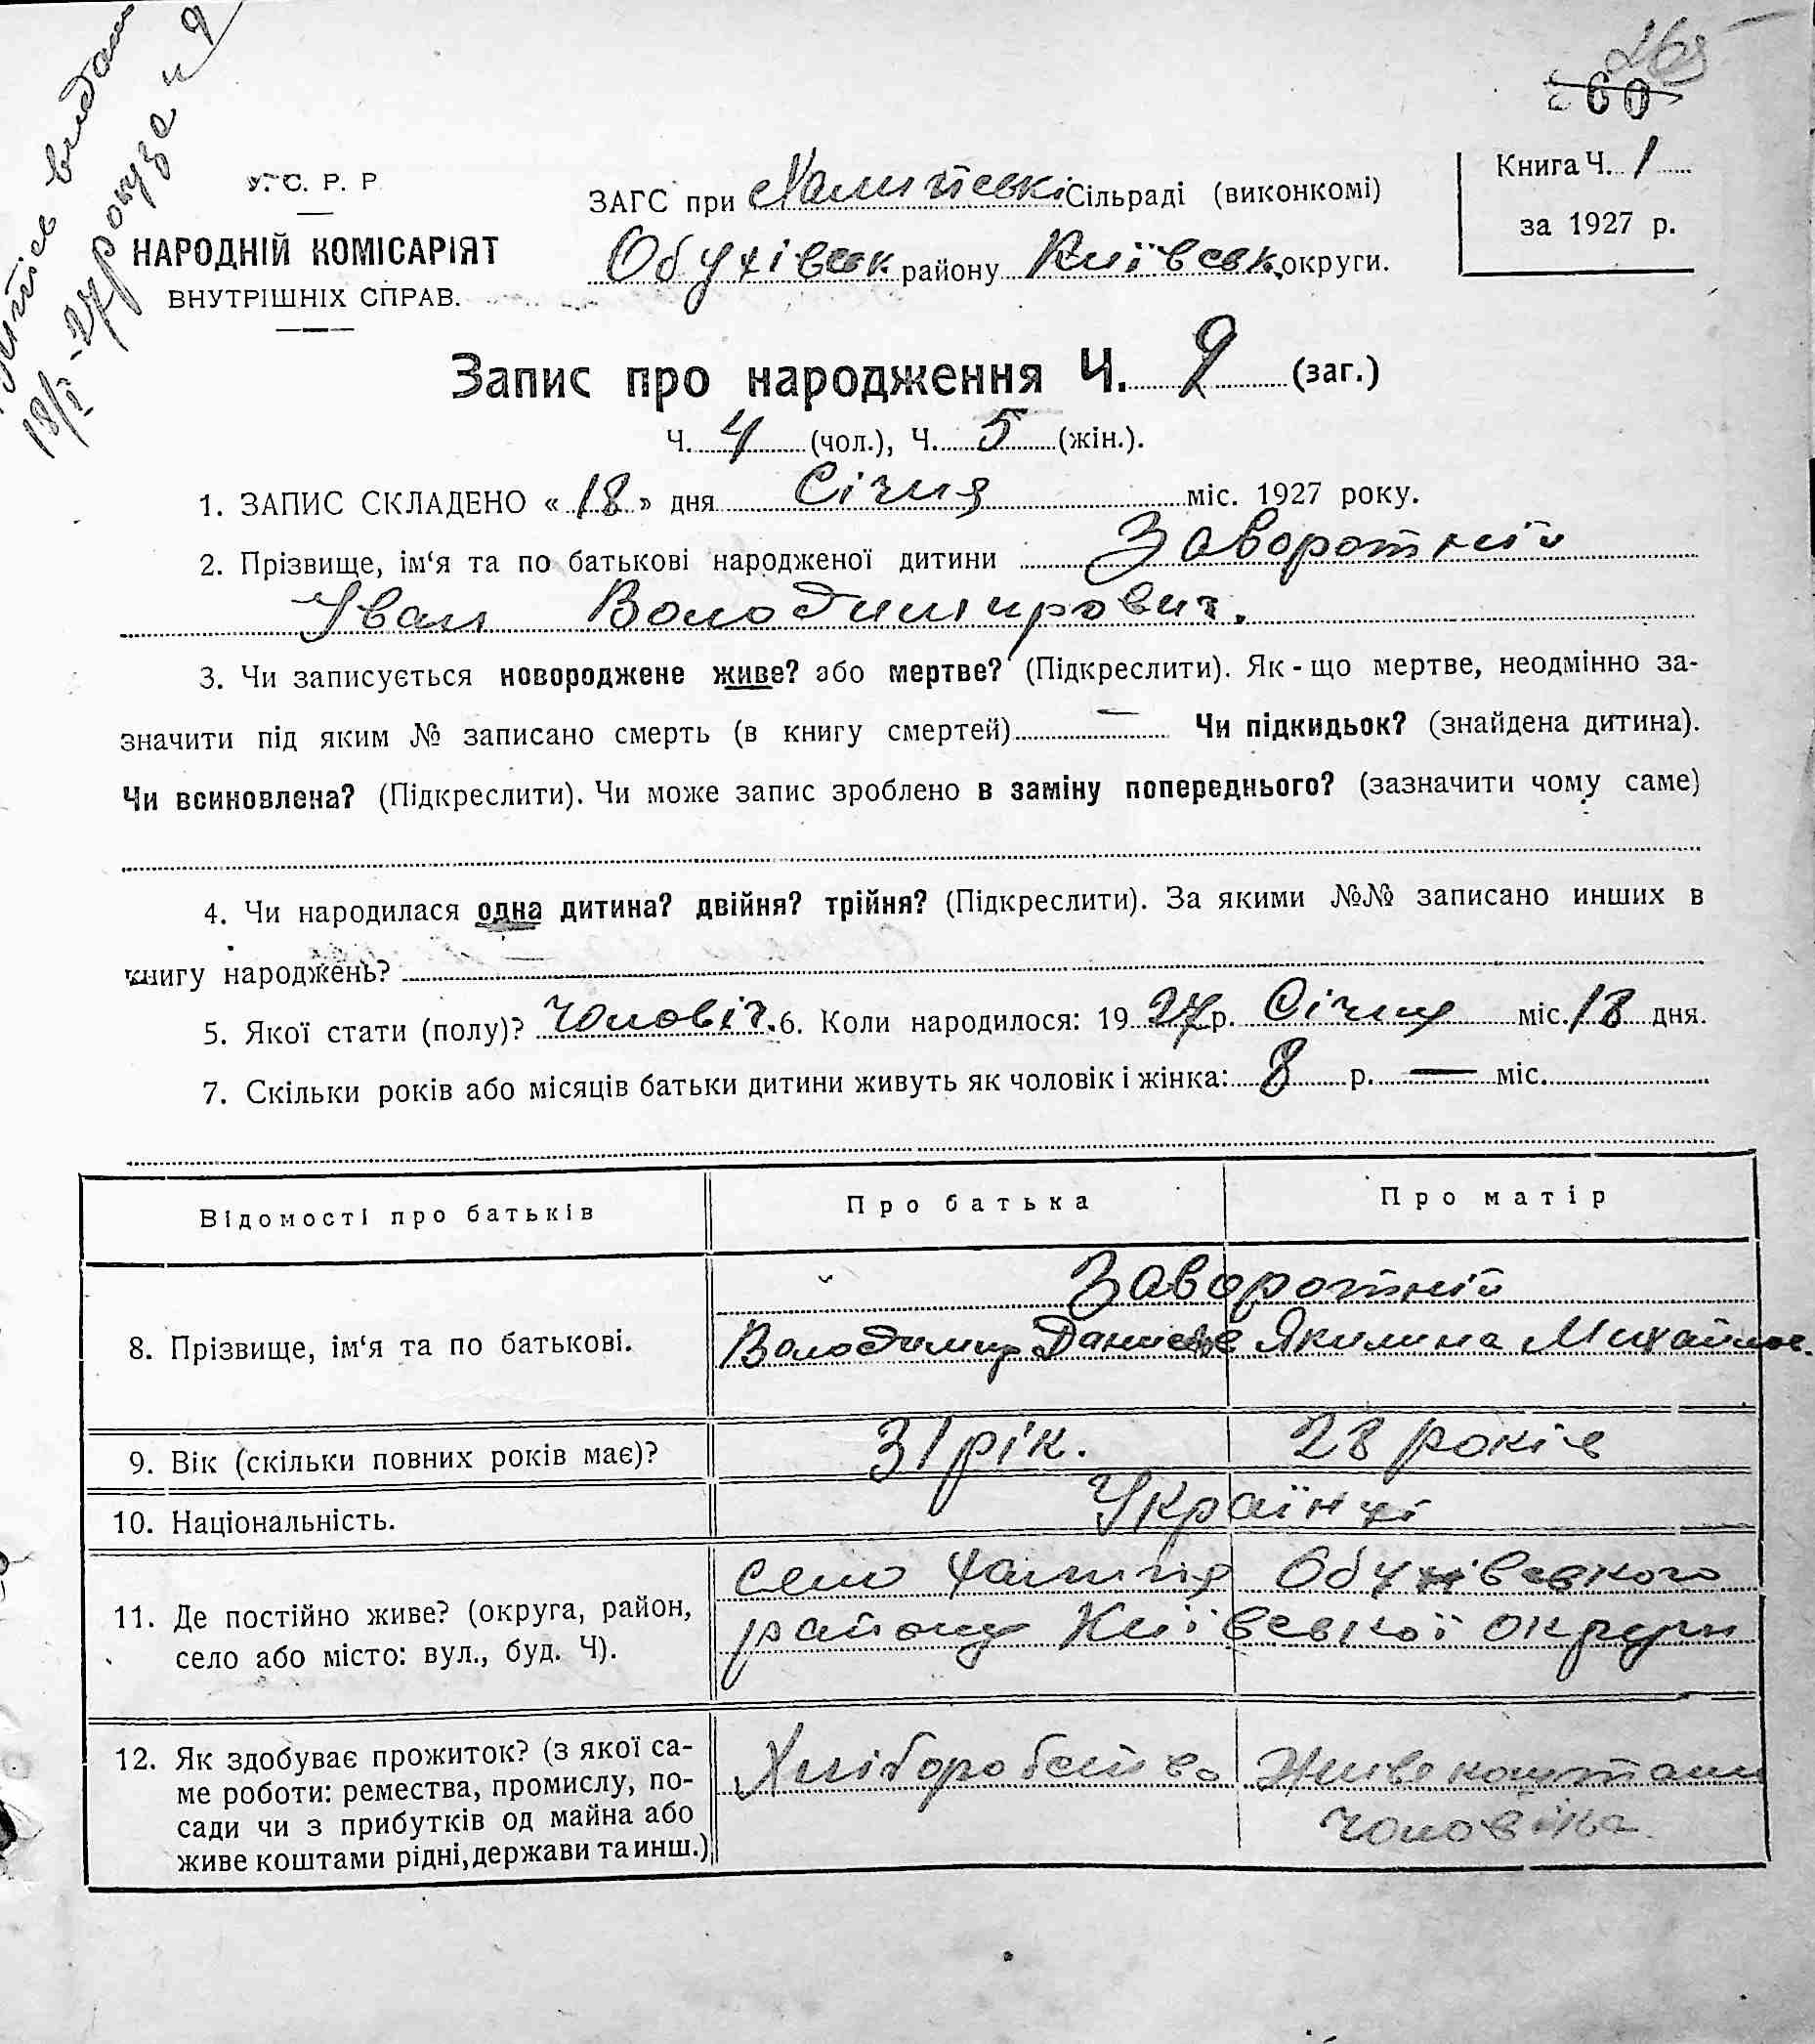 265
260
Книга Ч. 1
за 1927 р.
видан
18/I-27 року за № 9
У. С. Р. Р
НАРОДНІЙ КОМІСАРІЯТ
ВНУТРІШНІХ СПРАВ.
ЗАГС при Халипські Сільраді (виконкомі)
Обухівськ району Київськ округи.
Запис про народження Ч. 9 (заг.)
Ч. 4 (чол.), Ч. 5 (жін.).
1. ЗАПИС СКЛАДЕНО « 18 » дня Січня міс. 1927 року.
2. Прізвище, ім‘я та по батькові народженої дитини Заворотній
Іван Володимирович.
3. Чи записується новороджене живе? або мертве? (Підкреслити). Як-що мертве, неодмінно за-
значити під яким № записано смерть (в книгу смертей) — Чи підкидьок? (знайдена дитина).
Чи всиновлена? (Підкреслити). Чи може запис зроблено в заміну попереднього? (зазначити чому саме)
4. Чи народилася одна дитина? двійня? трійня? (Підкреслити). За якими №№ записано инших в
книгу народжень?
5. Якої стати (полу)? Чоловіч. 6. Коли народилося: 1927 р. Січня міс. 18 дня.
7. Скільки років або місяців батьки дитини живуть як чоловік і жінка: 8 р. — міс.
Відомості про батьків Про батька Про матір
8. Прізвище, ім‘я та по батькові. Заворотній
Володимир Данилов Якилина Михайлов.
9. Вік (скільки повних років має)? 31 рік. 28 років
10. Національність. Українці
11. Де постійно живе? (округа, район,
село або місто: вул., буд. Ч).
село Халипія Обухівського
району Київської округи
12. Як здобуває прожиток? (з якої са-
ме роботи: ремества, промислу, по-
сади чи з прибутків од майна або
живе коштами рідні, держави та инш.)
Хліборобство Живе коштами
чоловіка.